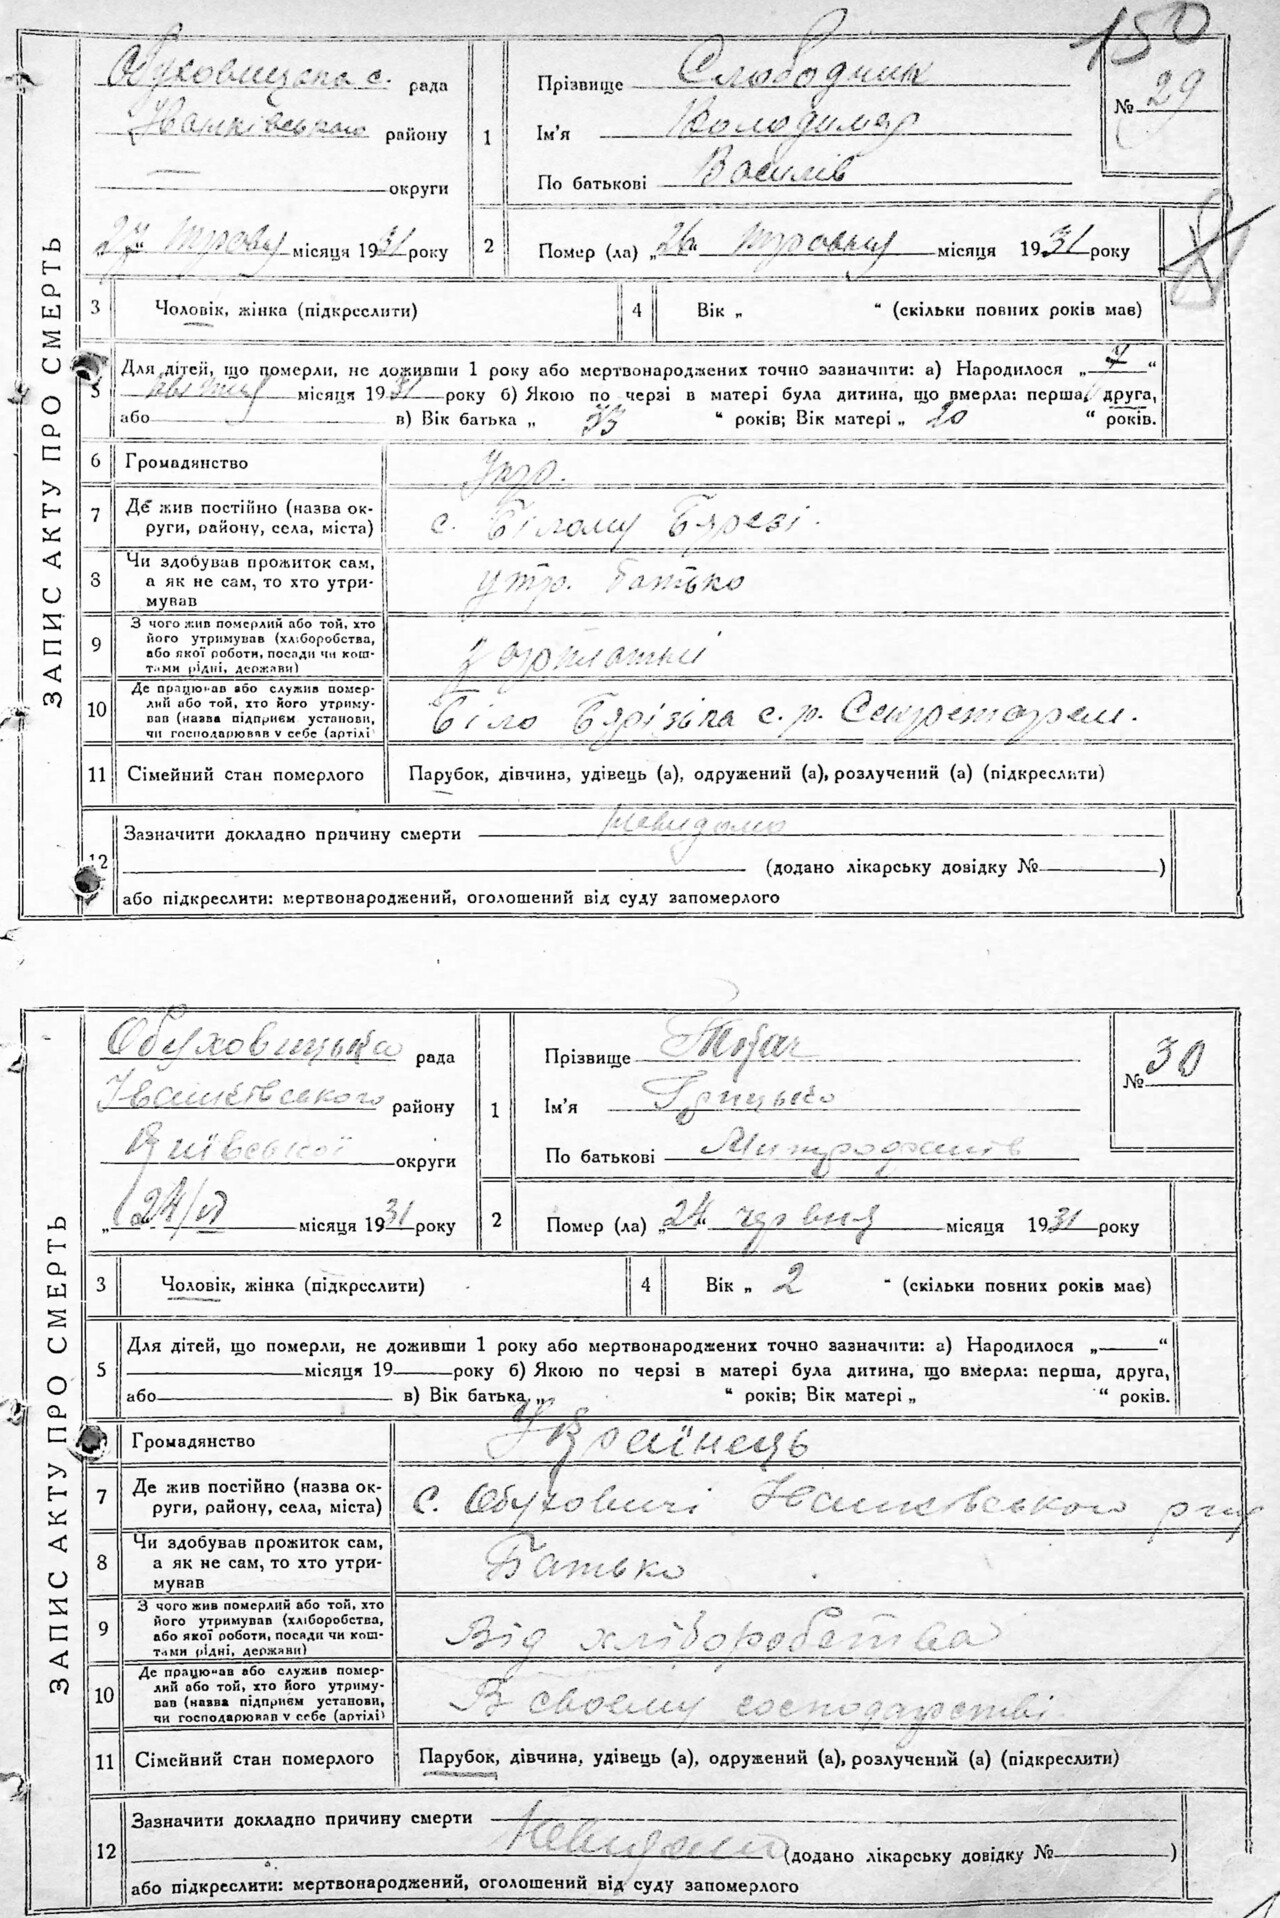 150
ЗАПИС АКТУ ПРО СМЕРТЬ
Обуховицька с. рада
Іванківського району
— округи
27 травня місяця 1931 року
1
Прізвище Слободник
Ім'я Володимер
По батькові Василів
№ 29
2 Помер (ла) „26“ травня місяця 1931 року
3 Чоловік, жінка (підкреслити)
4 Вік „ “ (скільки повних років має)
5 Для дітей, що померли, не доживши 1 року або мертвонароджених точно зазначити: а) Народилося „7“
місяця 1931 року б) Якою по черзі в матері була дитина, що вмерла: перша, друга,
або в) Вік батька „ 33 “ років; Вік матері „ 20 “ років.
6 Громадянство Укр.
7 Де жив постійно (назва ок-
руги, району, села, міста) с. Білому Березі.
8 Чи здобував прожиток сам,
а як не сам, то хто утри-
мував утр. батько
9 З чого жив померлий або той, хто
його утримував (хліборобства,
або якої роботи, посади чи кош-
тами рідні, держави) зарплатні
10 Де працював або служив помер-
лий або той, хто його утриму-
вав (назва підприєм установи,
чи господарював у себе (артілі) Біло Бярізька с. р. Секретарем.
11 Сімейний стан померлого Парубок, дівчина, удівець (а), одружений (а), розлучений (а) (підкреслити)
12 Зазначити докладно причину смерти невидомо
(додано лікарську довідку № )
або підкреслити: мертвонароджений, оголошений від суду запомерлого
ЗАПИС АКТУ ПРО СМЕРТЬ
Обуховицька рада
Іванківського району
Київської округи
„24/VI місяця 1931 року
1
Прізвище Ткач
Ім'я Грицько
По батькові Митрофанів
№ 30
2 Помер (ла) „24“ червня місяця 1931 року
3 Чоловік, жінка (підкреслити)
4 Вік „ 2 “ (скільки повних років має)
5 Для дітей, що померли, не доживши 1 року або мертвонароджених точно зазначити: а) Народилося „—“
місяця 19 року б) Якою по черзі в матері була дитина, що вмерла: перша, друга,
або в) Вік батька „ “ років; Вік матері „ “ років.
Громадянство Українець
7 Де жив постійно (назва ок-
руги, району, села, міста) С. Обуховичі Іванківського р-ну
8 Чи здобував прожиток сам,
а як не сам, то хто утри-
мував Батько
9 З чого жив померлий або той, хто
його утримував (хліборобства,
або якої роботи, посади чи кош-
тами рідні, держави) Від хліборобства
10 Де працював або служив помер-
лий або той, хто його утриму-
вав (назва підприєм установи,
чи господарював у себе (артілі) В своєму господарстві.
11 Сімейний стан померлого Парубок, дівчина, удівець (а), одружений (а), розлучений (а) (підкреслити)
12 Зазначити докладно причину смерти
Невидомо (додано лікарську довідку № )
або підкреслити: мертвонароджений, оголошений від суду запомерлого